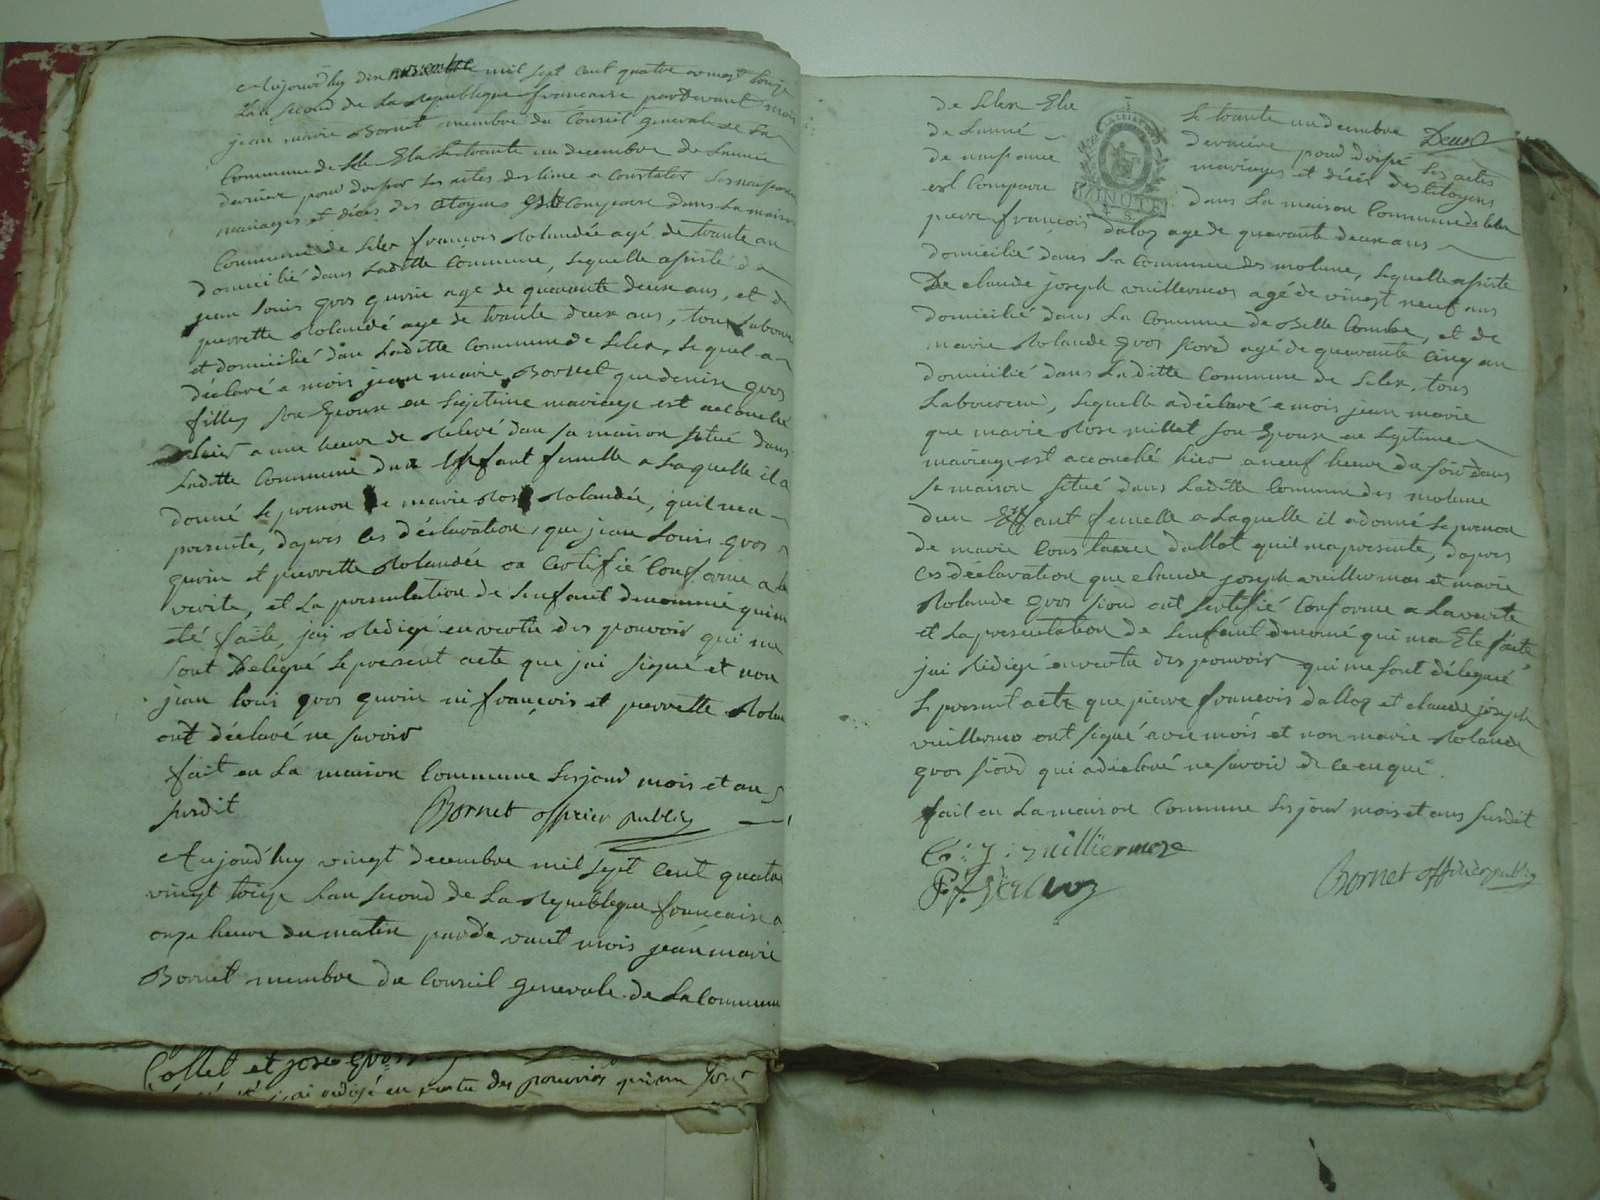 Aujourdhuy dix novembre mil sept cent quatre vingt troize
Lan second de La Republique francaise pardevant mois
jean marie Bornet membre du Conseil generale de La
Commune de Selex Elu Le trante un decembre de Lannée
derniere pour dresser Les actes destiné a constater Les naissances
mariages et décès des Citoyens Est Comparu dans La maison
Commune de Selex françois Rolandée agé de trante an
domicilié dans Laditte Commune, Lequelle assisté de
jean Louis gros gurin age de quarante deux ans, et de
pierrette Rolandé age de trante deux ans, tous Laboureur
et domicilié dans Laditte Commune de Selex, Lequel a
déclaré a mois jean marie Bornet que denise gros
fillex son Epouse en Legitime mariage est acouché
hier a une heure de Relevé dans sa maison situé dans
Laditte Commune dun Enfant femelle a Laquelle il a
donné Le prenom de marie Rose Rolandée, quil ma
presente, dapres Ces déclaration, que jean Louis gros
gurin et pierrette Rolandée on Certifié Conforme a la
verite, et La presentation de Lenfant denommé qui ma
été faite, jai Redigé en vertu des pouvoir qui me
sont Delegué Le present acte que jai signé et non
jean Louis gros gurin ni françois et pierrette Rolan
ont déclaré ne savoir
fait en La maison Commune Les jour mois et an
susdit
Bornet officier public
Aujourdhuy vingt decembre mil sept cent quatre
vingt troize Lan second de La Republique francaise a
onze heure du matin pardevant mois jean marie
Bornet membre du Conseil generale de La Commune
Collet et jose gros
jai redigé en vertu des pouvoirs qui me sont
Deux
de Selex Elu Le trante un decembre
de Lanné derniere pour dresse Les actes
de naissance mariages et décés des Citoyens
est Comparu dans La maison Commune de Selex
MINUTE
pierre françois daloz age de quarante deux ans
domicilié dans La Commune des molune, Lequelle assisté
De claude joseph vuillermos agé de vingt neuf ans
domicilié dans La Commune de Belle Combe, et de
marie Rolande gros fiord agé de quarante Cinq an
domicilié dans Laditte Commune de Selex, tous
Laboureur, Lequelle a déclaré a mois jean marie
que marie Rose millet son Epouse en Legitime
mariage est accouché hier a neuf heure du soir dans
sa maison situé dans Laditte Commune des molune
dun Enfant femelle a Laquelle il a donné Le prenom
de marie Constance dallot quil ma presente, dapres
Ces déclaration que claude joseph vuillermos et marie
Rolande gros fiord ont Certifié Conforme a La verite
et La presentation de Lenfant denomé qui ma Ete faite
jai Rédigé en vertu des pouvoir qui me sont délegué
Le present acte que pierre françois dalloz et claude joseph
vuillermo ont signé avec mois et non marie Rolande
gros fiord qui a déclaré ne savoir de ce enqui
fait en La maison Commune Les jour mois et ans susdit
C: J: vuilliermoze
P. f. Dalloz
Bornet officier public